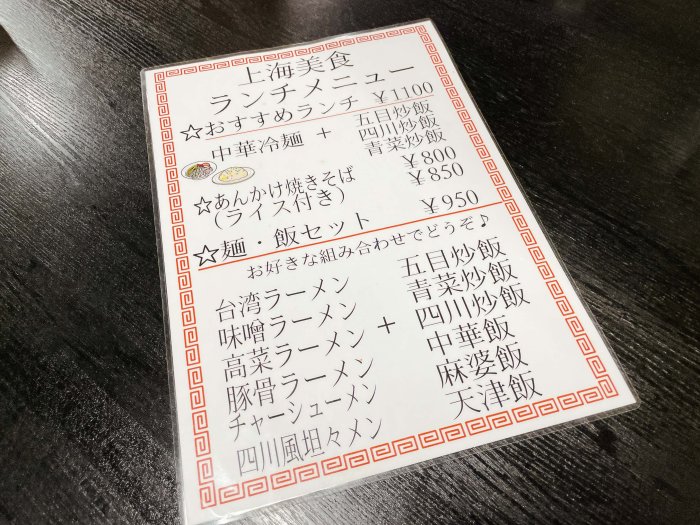 上海美食
ランチメニュー
☆おすすめランチ ¥1100
中華冷麺 + 五目炒飯
四川炒飯
青菜炒飯
☆あんかけ焼きそば ¥800
(ライス付き) ¥850
☆麺・飯セット ¥950
お好きな組み合わせでどうぞ♪
台湾ラーメン 五目炒飯
味噌ラーメン 青菜炒飯
高菜ラーメン + 四川炒飯
豚骨ラーメン 中華飯
チャーシューメン 麻婆飯
四川風坦々メン 天津飯